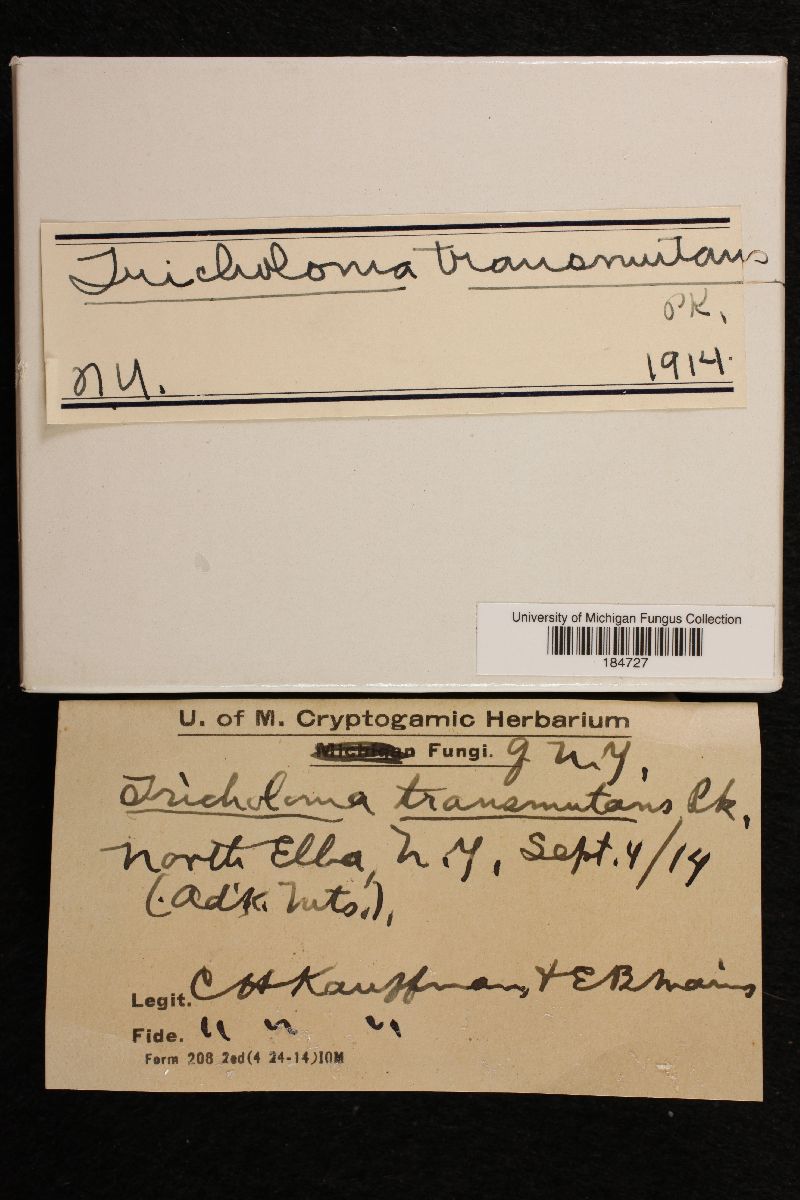 Tricholoma transmutans
Pk.
N Y. 1914.
University of Michigan Fungus Collection
184727
U. of M. Cryptogamic Herbarium
Michigan Fungi. of N.Y,
Tricholoma transmutans Pk.
North Elba, N.Y, Sept. 4/14
(Ad'k. Mts.),
Legit. C H Kauffman, + E B Mains
Fide. " " "
Form 208 2ed(4 24-14)10M